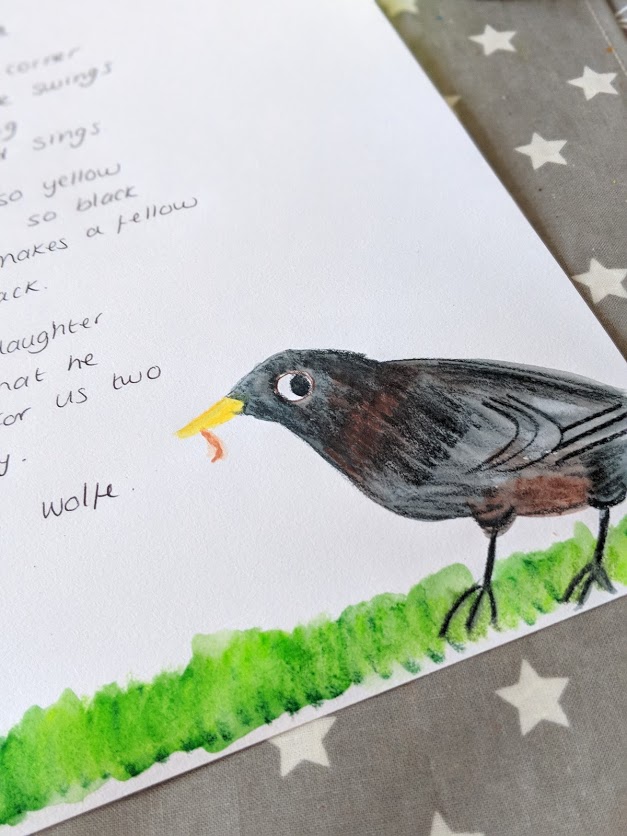 corner
swings
sings
so yellow
so black
makes a fellow
ack.
laughter
hat he
for us two
y.
Wolfe.